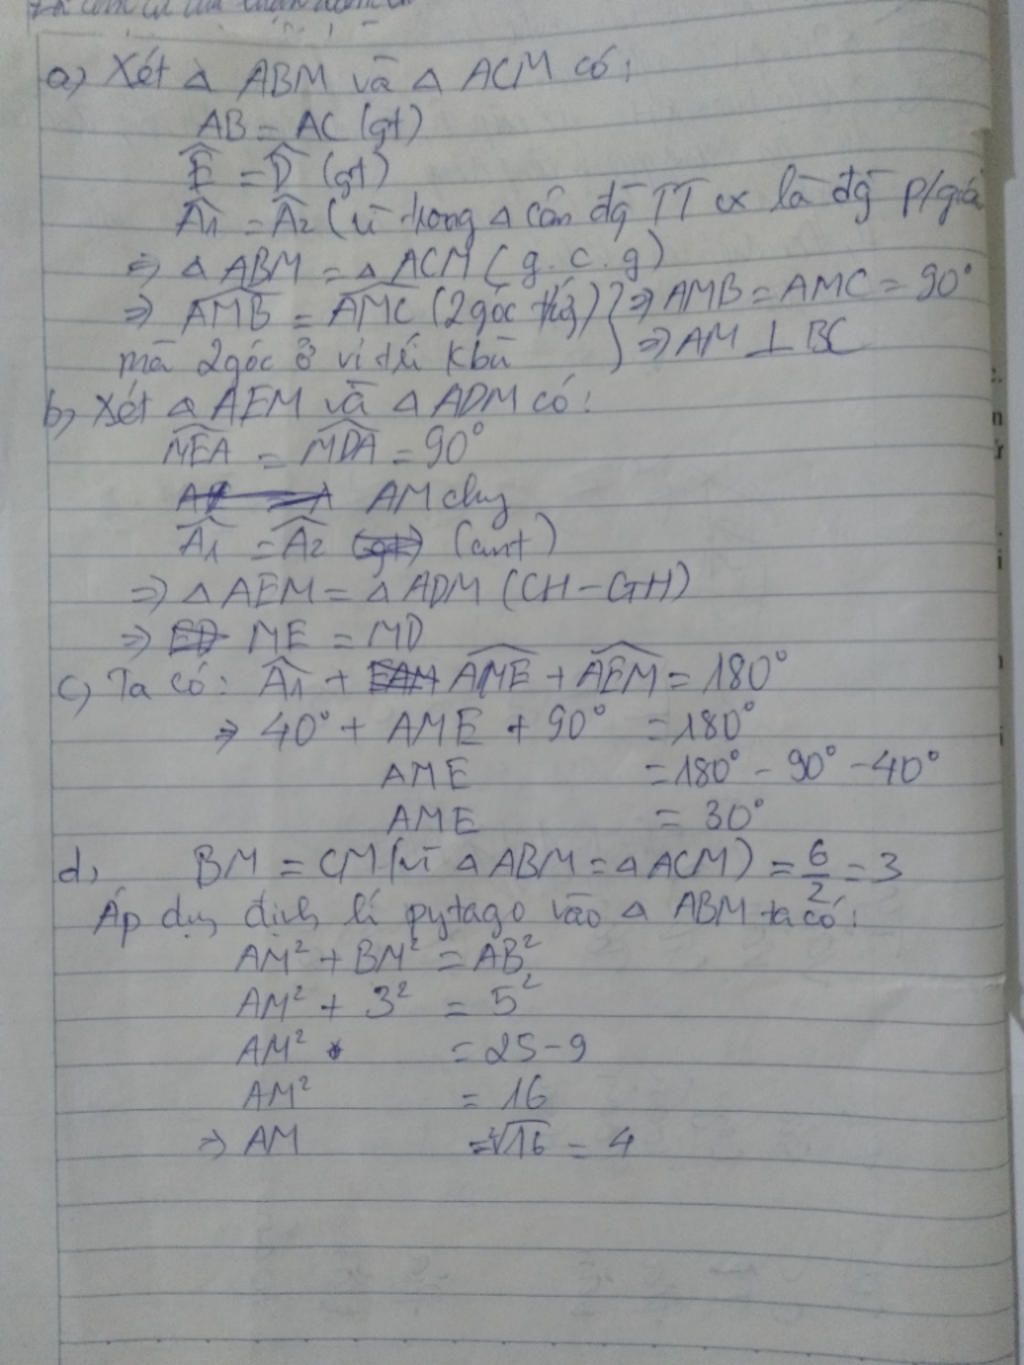 a) Xét Δ ABM và Δ ACM có:
AB = AC (gt)
Ê = D̂ (gt)
Â1 = Â2 (vì trong Δ cân đg TT cx là đg p/giác
=> Δ ABM = Δ ACM (g.c.g)
=> AMB = AMC (2 góc t/ứg) } => AMB = AMC = 90°
mà 2 góc ở vị trí kbù => AM ⊥ BC
b, Xét Δ AEM và Δ ADM có:
MEA = MDA = 90°
AM chg
Â1 = Â2 (cmt)
=> Δ AEM = Δ ADM (CH-GH)
=> ME = MD
c, Ta có: Â1 + AME + AEM = 180°
=> 40° + AME + 90° = 180°
AME = 180° - 90° - 40°
AME = 30°
d, BM = CM (vì Δ ABM = Δ ACM) = 6/2 = 3
Áp dụg định lí pytago vào Δ ABM ta có:
AM² + BM² = AB²
AM² + 3² = 5²
AM² = 25 - 9
AM² = 16
=> AM = √16 = 4